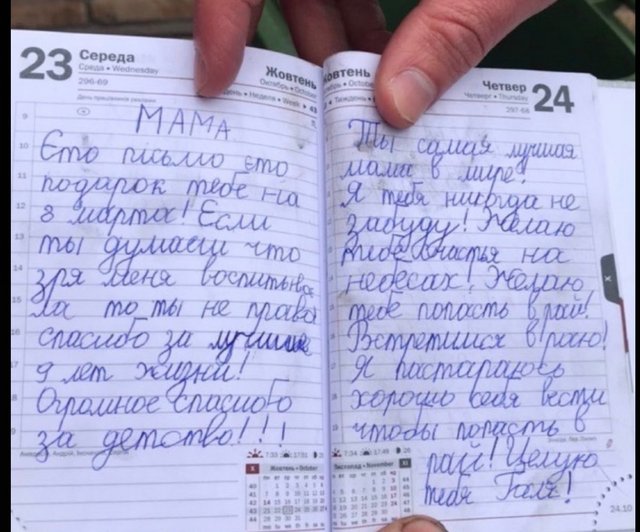 23 Середа
Среда • Wednesday
296-69
Жовтень
Октябрь • October
День • Неделя • Week ▸ 43
День працівників реклами
МАМА
Єто письмо єто
подарок тебе на
8 марта! Если
ты думаеш что
зря меня воспитывае
ла то ты не права
спасибо за лучшие
9 лет жизни!
Огромное спасибо
за детство!!!
7:33 17:51
Жовтень • October
Жовтень
Октябрь • October
Четвер 24
Четверг • Thursday
297-68
Ты самая лучшая
мама в мире!
Я тебя никогда не
забуду! Желаю
тебе счастья на
небесах! Желаю
тебе попасть в рай!
Встретимся в раю!
Я пастараюсь
хорошо себя вести
чтобы попасть в
рай! Целую
тебя Галя!
7:34 17:49
Листопад • November
24.10